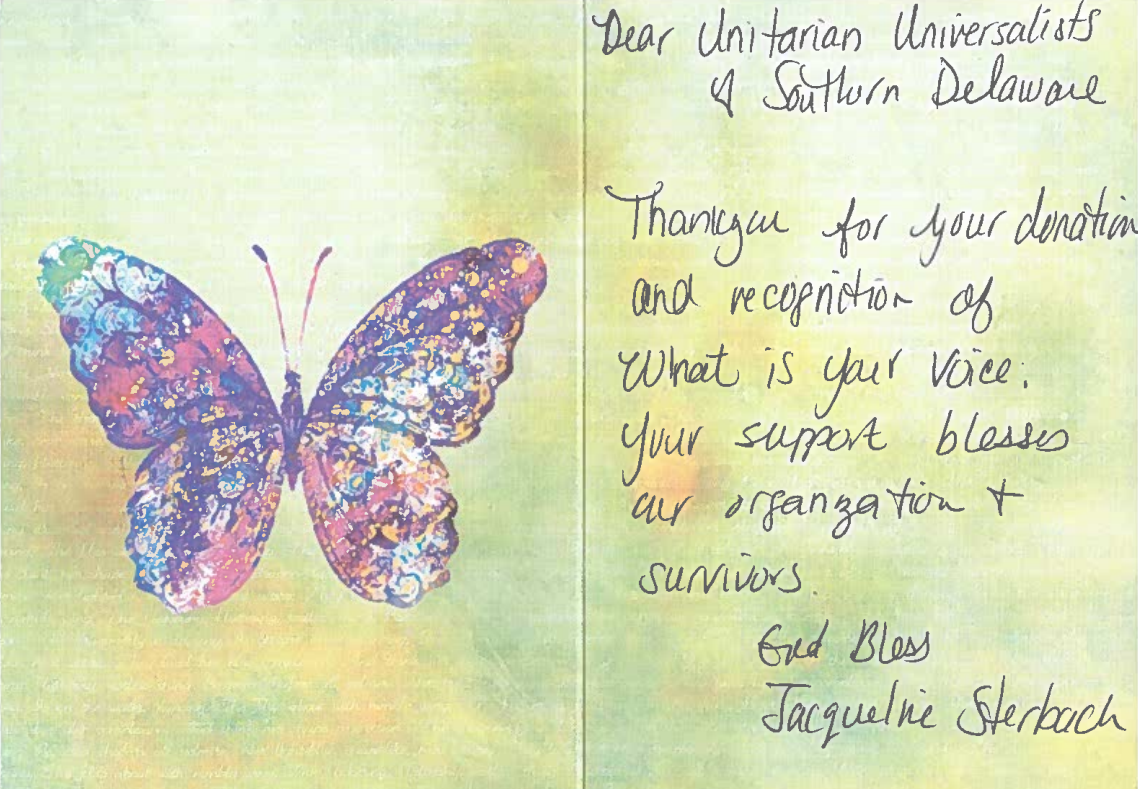 Dear Unitarian Universalists
of Southern Delaware
Thankyou for your donation
and recognition of
What is your Voice.
Your support blesses
our organization +
survivors.
God Bless
Jacqueline Sterbach